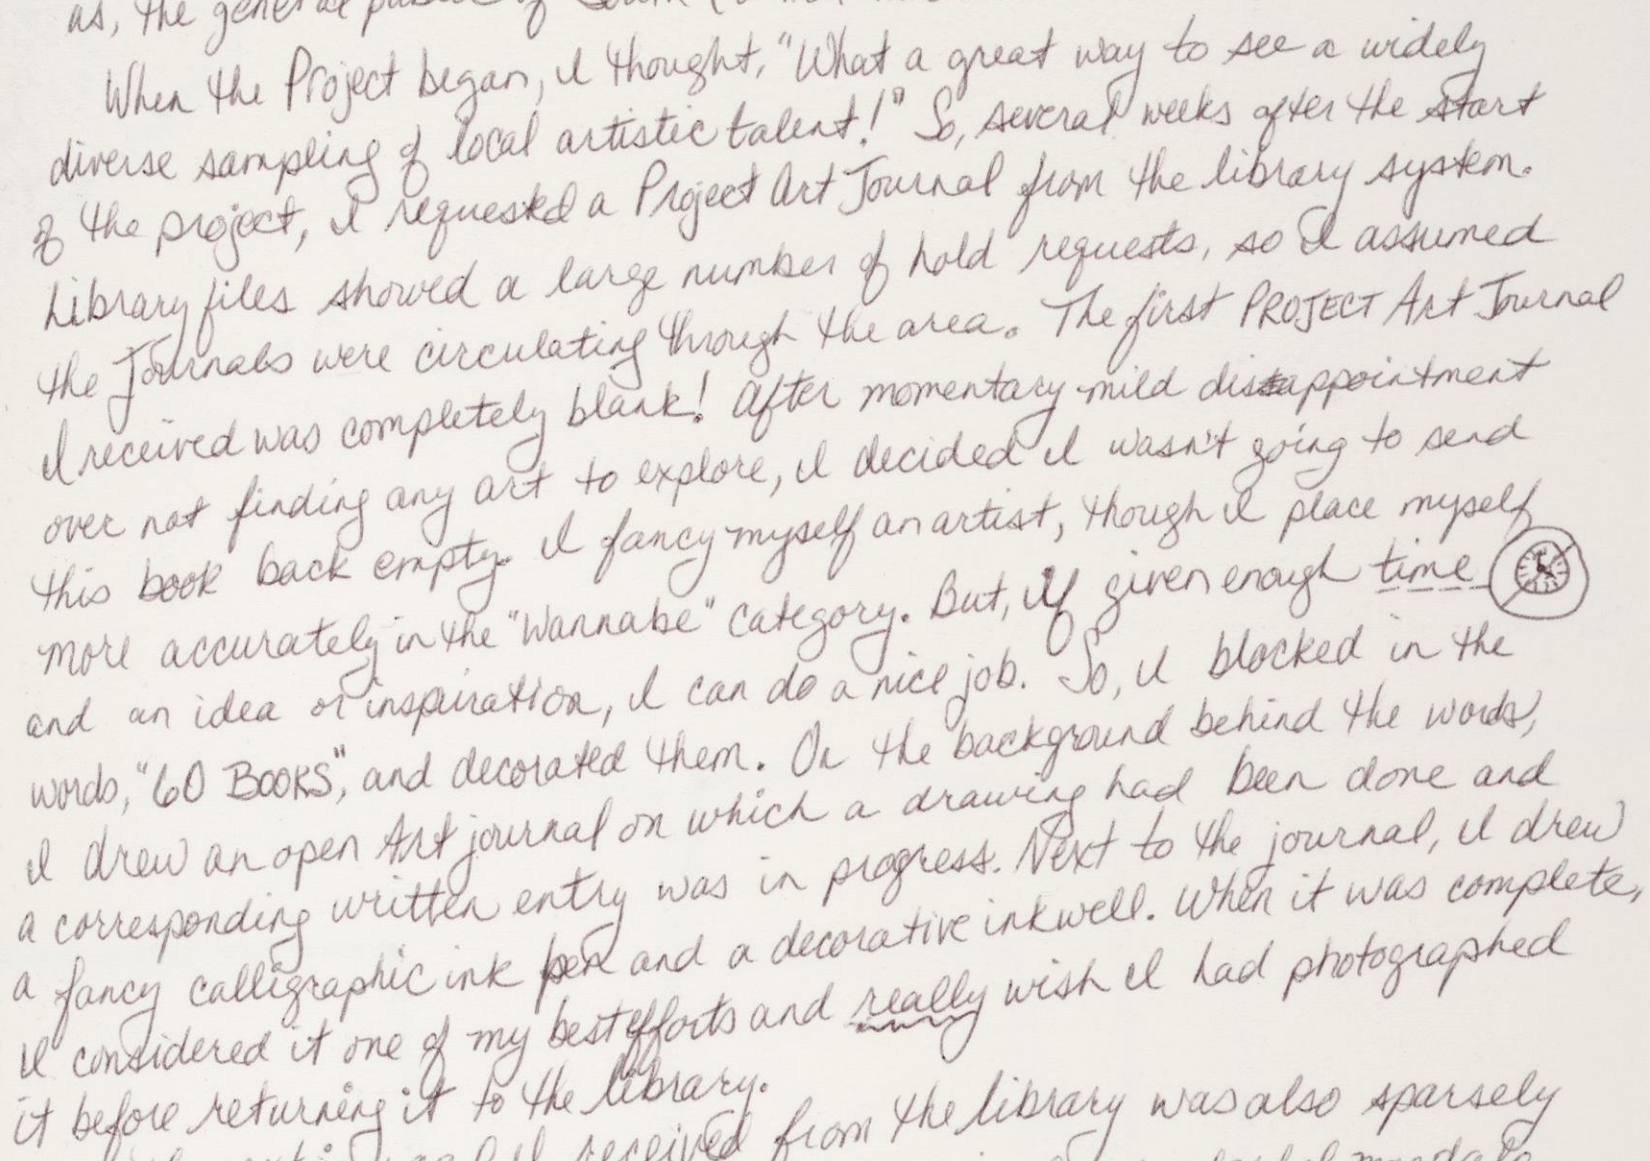 as, the general public of South
When the Project began, I thought, "What a great way to see a widely
diverse sampling of local artistic talent!" So, several weeks after the start
of the project, I requested a Project Art Journal from the library system.
Library files showed a large number of hold requests, so I assumed
the Journals were circulating through the area. The first PROJECT Art Journal
I received was completely blank! After momentary mild disappointment
over not finding any art to explore, I decided I wasn't going to send
this book back empty. I fancy myself an artist, though I place myself
more accurately in the "Wannabe" category. But, if given enough time
and an idea or inspiration, I can do a nice job. So, I blocked in the
words, "60 BOOKS", and decorated them. On the background behind the words,
I drew an open Art journal on which a drawing had been done and
a corresponding written entry was in progress. Next to the journal, I drew
a fancy calligraphic ink pen and a decorative inkwell. When it was complete,
I considered it one of my best efforts and really wish I had photographed
it before returning it to the library.
I received from the library was also sparsely